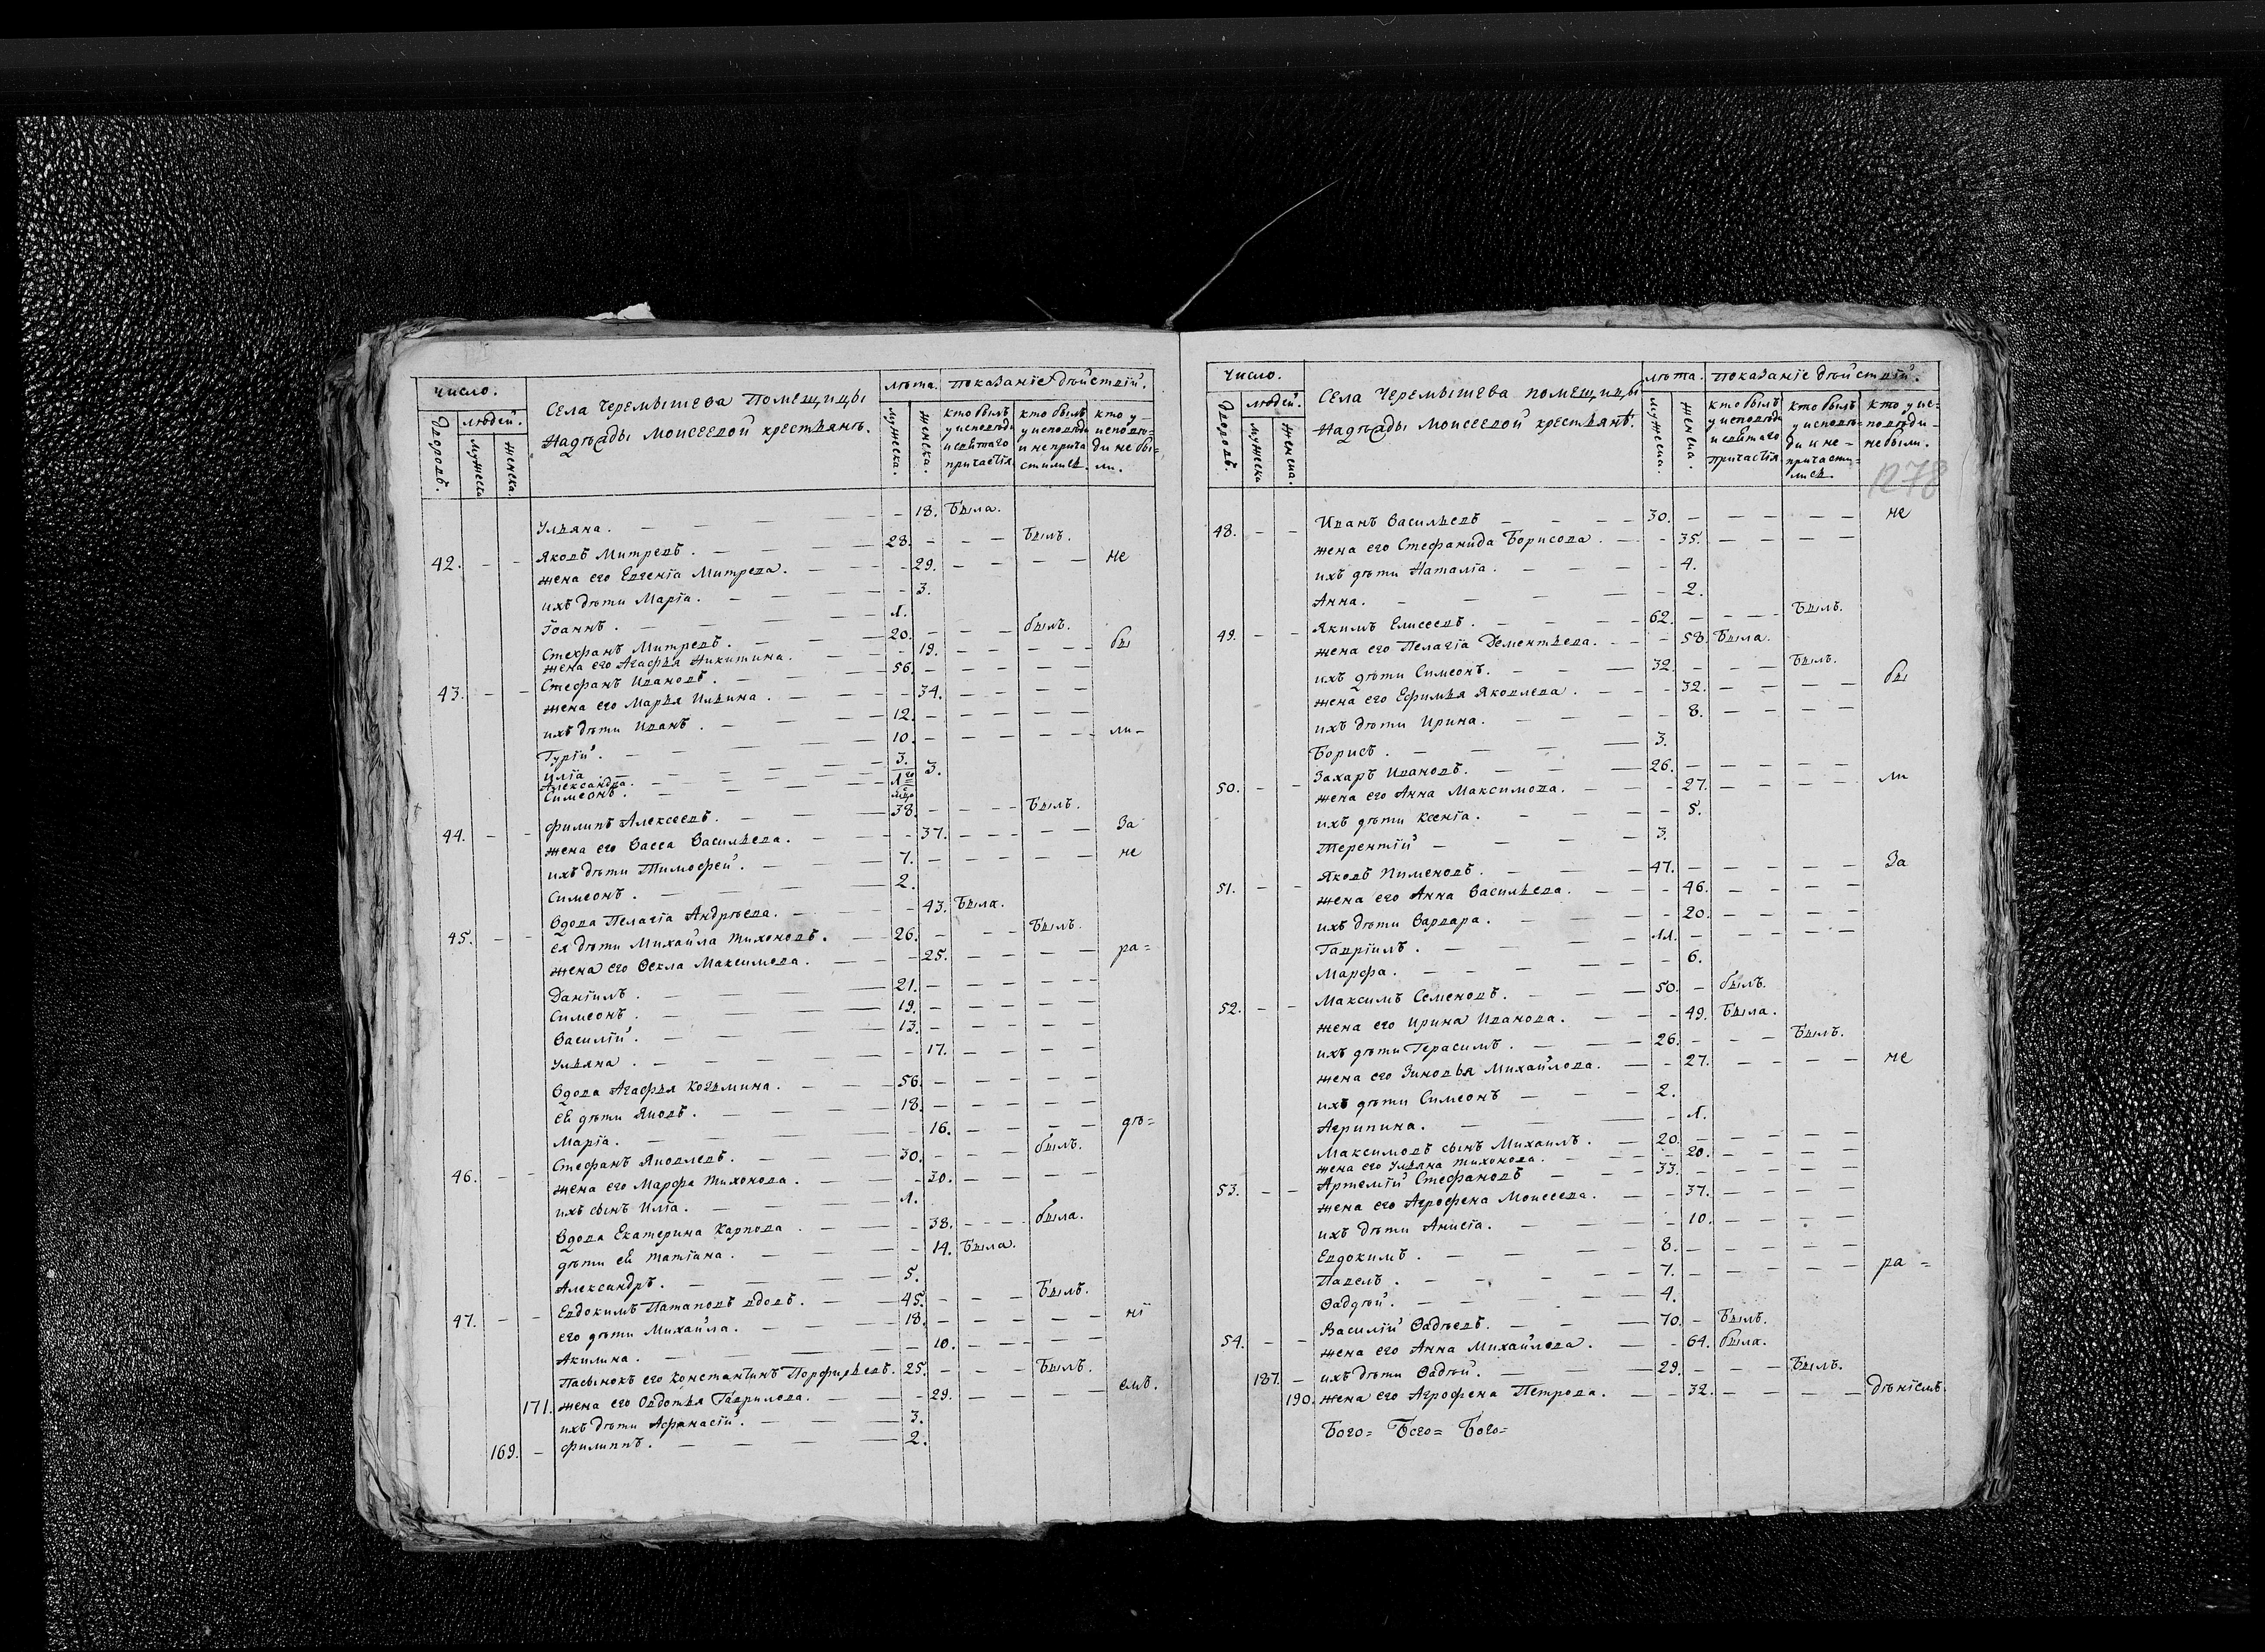 число.
людей.
дворовъ.
мужеска
женска
Села Черемышева Помещицы
Надежды Моисеевой крестьянъ.
лѣта.
мужеска.
женска.
показаніе дѣйствій.
кто былъ у исповѣди и святаго причастія
кто былъ у исповѣди и не причастились
кто у исповѣди не были.
Ульяна. 18. Была.
42. Яковъ Митревъ. 28. Былъ.
жена его Евгенія Митрева. 29. не
ихъ дѣти Марія. 3.
Іоаннъ. 1.
Стефанъ Митревъ. 20. былъ.
жена его Агафья Никитина. 19. бы
43. Стефанъ Ивановъ. 56.
жена его Марья Ильина. 34.
ихъ дѣти Иванъ. 12.
Гурій. 10. ли-
Илія 3.
Александра. 3.
Симеонъ.
44. Филипъ Алексеевъ. 38. Былъ.
жена его Васса Васильева. 37. За
ихъ дѣти Тимофей. 7. не
Симеонъ. 2.
Вдова Пелагія Андрѣева. 43. Была.
45. ея дѣти Михайла Тихоновъ. 26. Былъ.
жена его Фекла Максимова. 25. ра=
Даніилъ. 21.
Симеонъ. 19.
Василій. 13.
Ульяна. 17.
Вдова Агафья Козьмина. 56.
ей дѣти Яковъ. 18.
Марія. 16. дѣ=
46. Стефанъ Яковлевъ. 30. былъ.
жена его Марфа Тихонова. 30.
ихъ сынъ Илія. 1.
Вдова Екатерина Карпова. 38. была.
дѣти ей Татіана. 14. Была.
Александръ. 5.
47. Евдокимъ Патаповъ вдовъ. 45. Былъ.
его дѣти Михайла. 18. ні
Акилина. 10.
Пасынокъ его Константинъ Порфирьевъ. 25. Былъ.
171. жена его Овдотья Гаврилова. 29. емъ.
ихъ дѣти Афанасій. 3.
169. Филиппъ. 2.
число.
людей.
дворовъ.
мужеска
женска.
Села Черемышева помещицы
Надежды Моисеевой крестьянъ.
лѣта.
мужеска.
женска.
показаніе дѣйствій.
кто былъ у исповѣди и святаго причастія
кто былъ у исповѣди и не причастились
кто у исповѣди не были.
1278
48. Иванъ Васильевъ 30. не
жена его Стефанида Борисова. 35.
ихъ дѣти Наталія. 4.
Анна. 2.
49. Якимъ Елисеевъ. 62. Былъ.
жена его Пелагія Дементьева. 58. Была.
ихъ дѣти Симеонъ. 32. Былъ.
жена его Ефимья Яковлева. 32. бы
ихъ дѣти Ирина. 8.
Борисъ. 3.
50. Захаръ Ивановъ. 26.
жена его Анна Максимова. 27. ли
ихъ дѣти Ксенія. 5.
Терентій 3.
51. Яковъ Пименовъ. 47. За
жена его Анна Васильева. 46.
ихъ дѣти Варвара. 20.
Гавріилъ. 11.
Марфа. 6.
52. Максимъ Семеновъ. 50. былъ.
жена его Ирина Иванова. 49. Была.
ихъ дѣти Герасимъ. 26. Былъ.
жена его Зиновья Михайлова. 27. не
ихъ дѣти Симеонъ 2.
Агрипина. 1.
Максимовъ сынъ Михаилъ. 20.
жена его Ульяна Тихонова. 20.
53. Артемій Стефановъ 33.
жена его Агрофена Моисеева. 37.
ихъ дѣти Анисія. 10.
Евдокимъ. 8.
Павелъ. 7. ра=
Фаддѣй. 4.
54. Василій Фадѣевъ. 70. Былъ.
жена его Анна Михайлова. 64. была.
187. ихъ дѣти Фадѣй. 29. Былъ.
190. жена его Агрофена Петрова. 32. дѣніемъ
Бого= Бого= Бого=